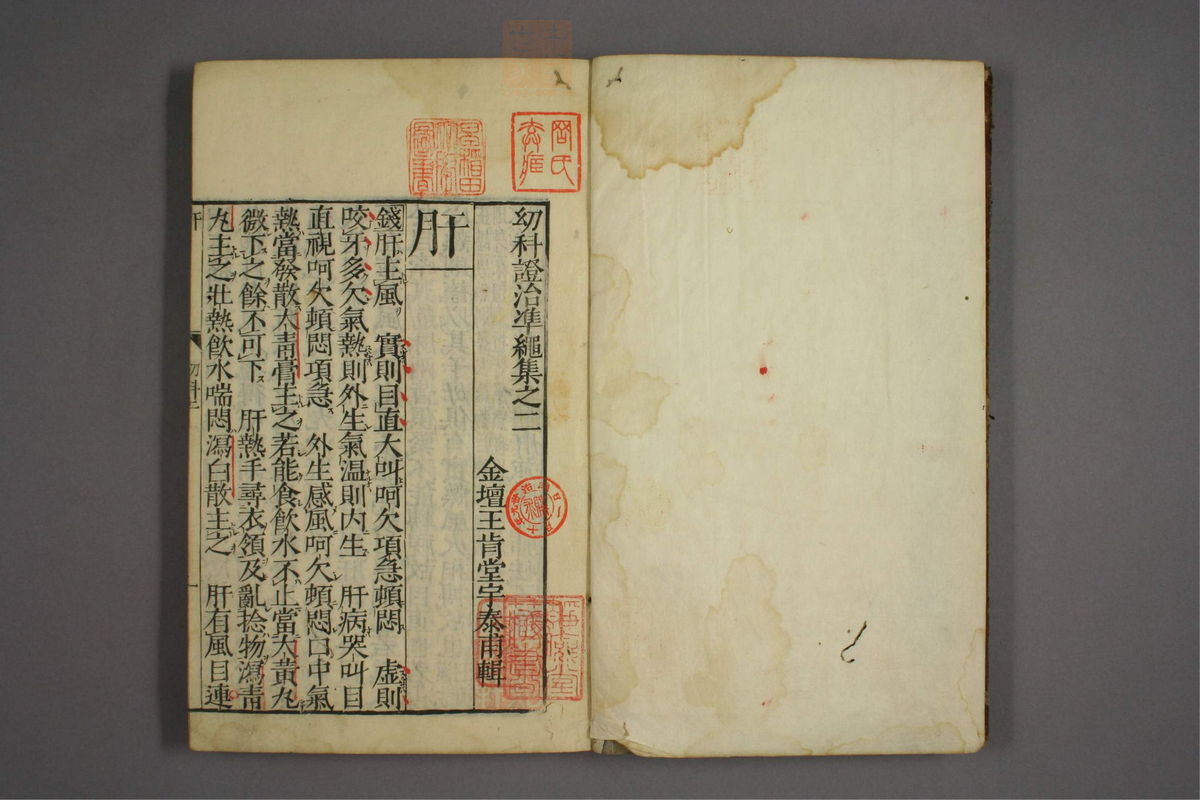 幼科證治準繩集之二
金壇王肯堂宇泰甫輯
肝
錢肝主風 實則目直大叫呵欠項急頓悶 虛則
咬牙多欠氣熱則外生氣温則内生 肝病哭叫目
直視呵欠頓悶項急 外生感風呵欠頓悶口中氣
熱當發散大青膏主之若能食飲水不止當大黄丸
微下之餘不可下 肝熱手尋衣領及亂捻物瀉青
丸主之壯熱飲水喘悶瀉白散主之 肝有風目連
肝
幼科二